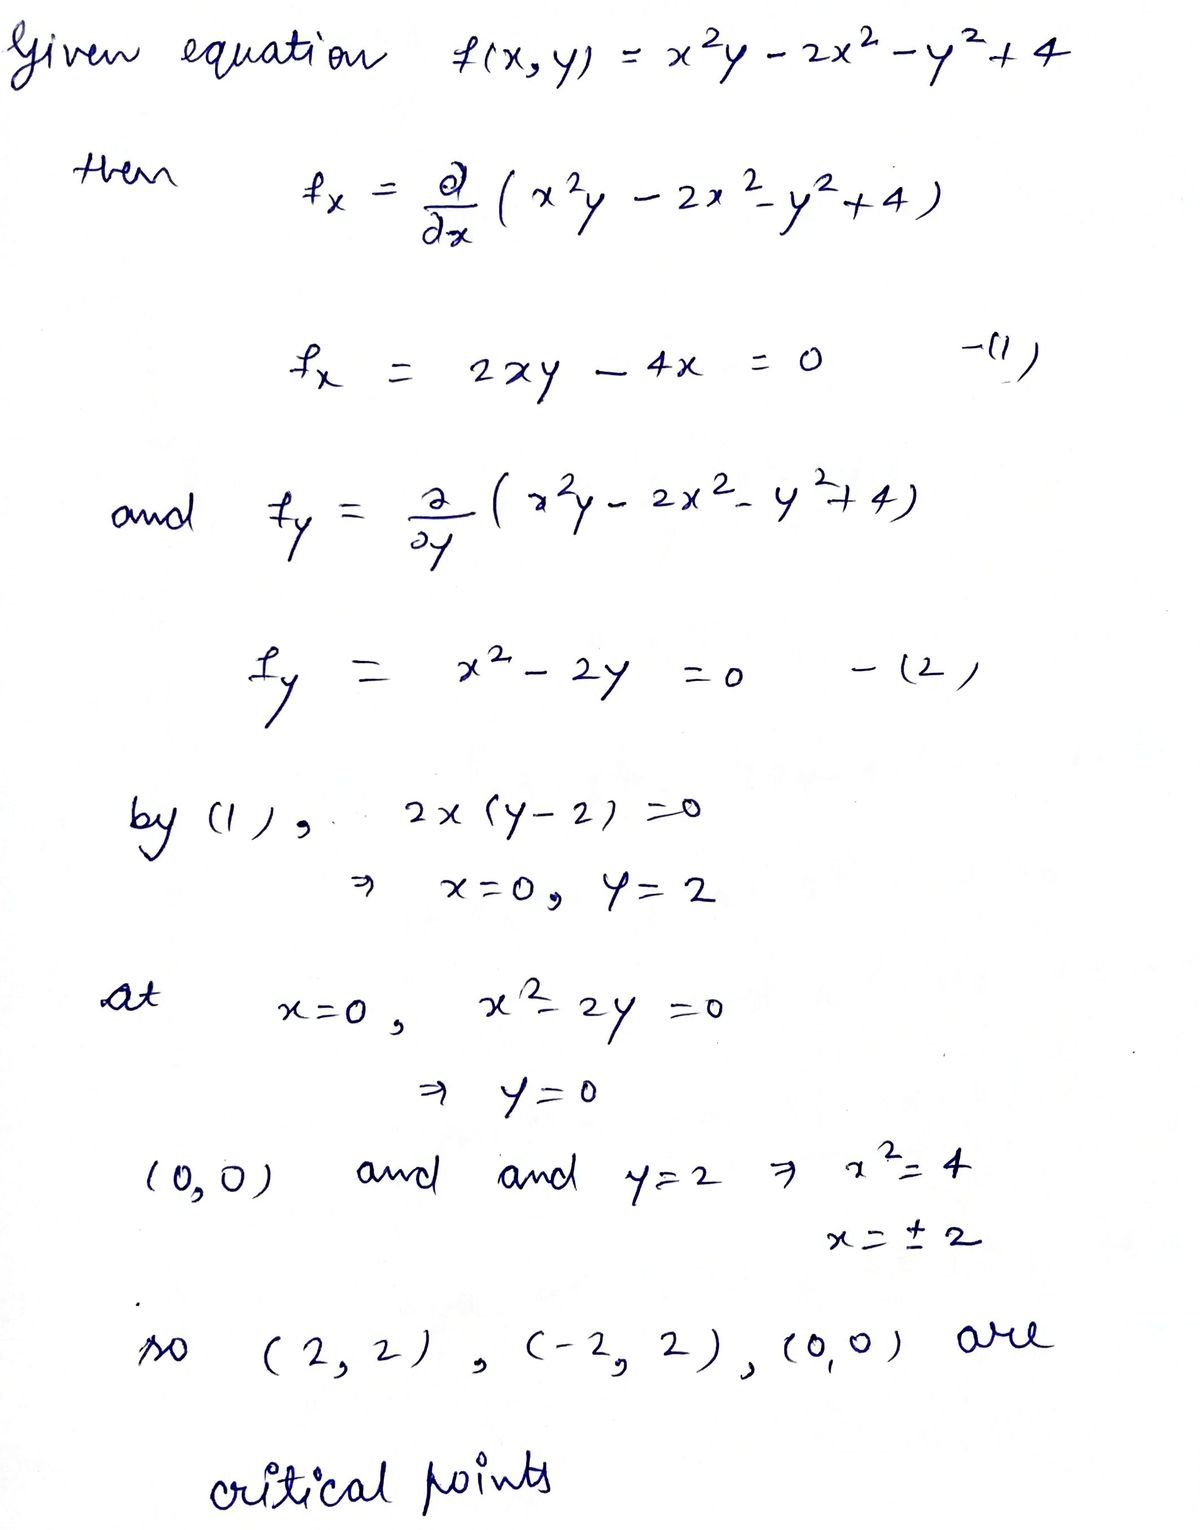 Given equation f(x, y) = x²y - 2x² - y² + 4
then fx = ∂/∂x (x²y - 2x² - y² + 4)
fx = 2xy - 4x = 0 -(1)
and fy = ∂/∂y (x²y - 2x² - y² + 4)
fy = x² - 2y = 0 - (2)
by (1), 2x (y - 2) = 0
⇒ x = 0, y = 2
at x = 0, x² - 2y = 0
⇒ y = 0
(0, 0) and and y = 2 ⇒ x² = 4
x = ± 2
so (2, 2), (-2, 2), (0, 0) are
critical points